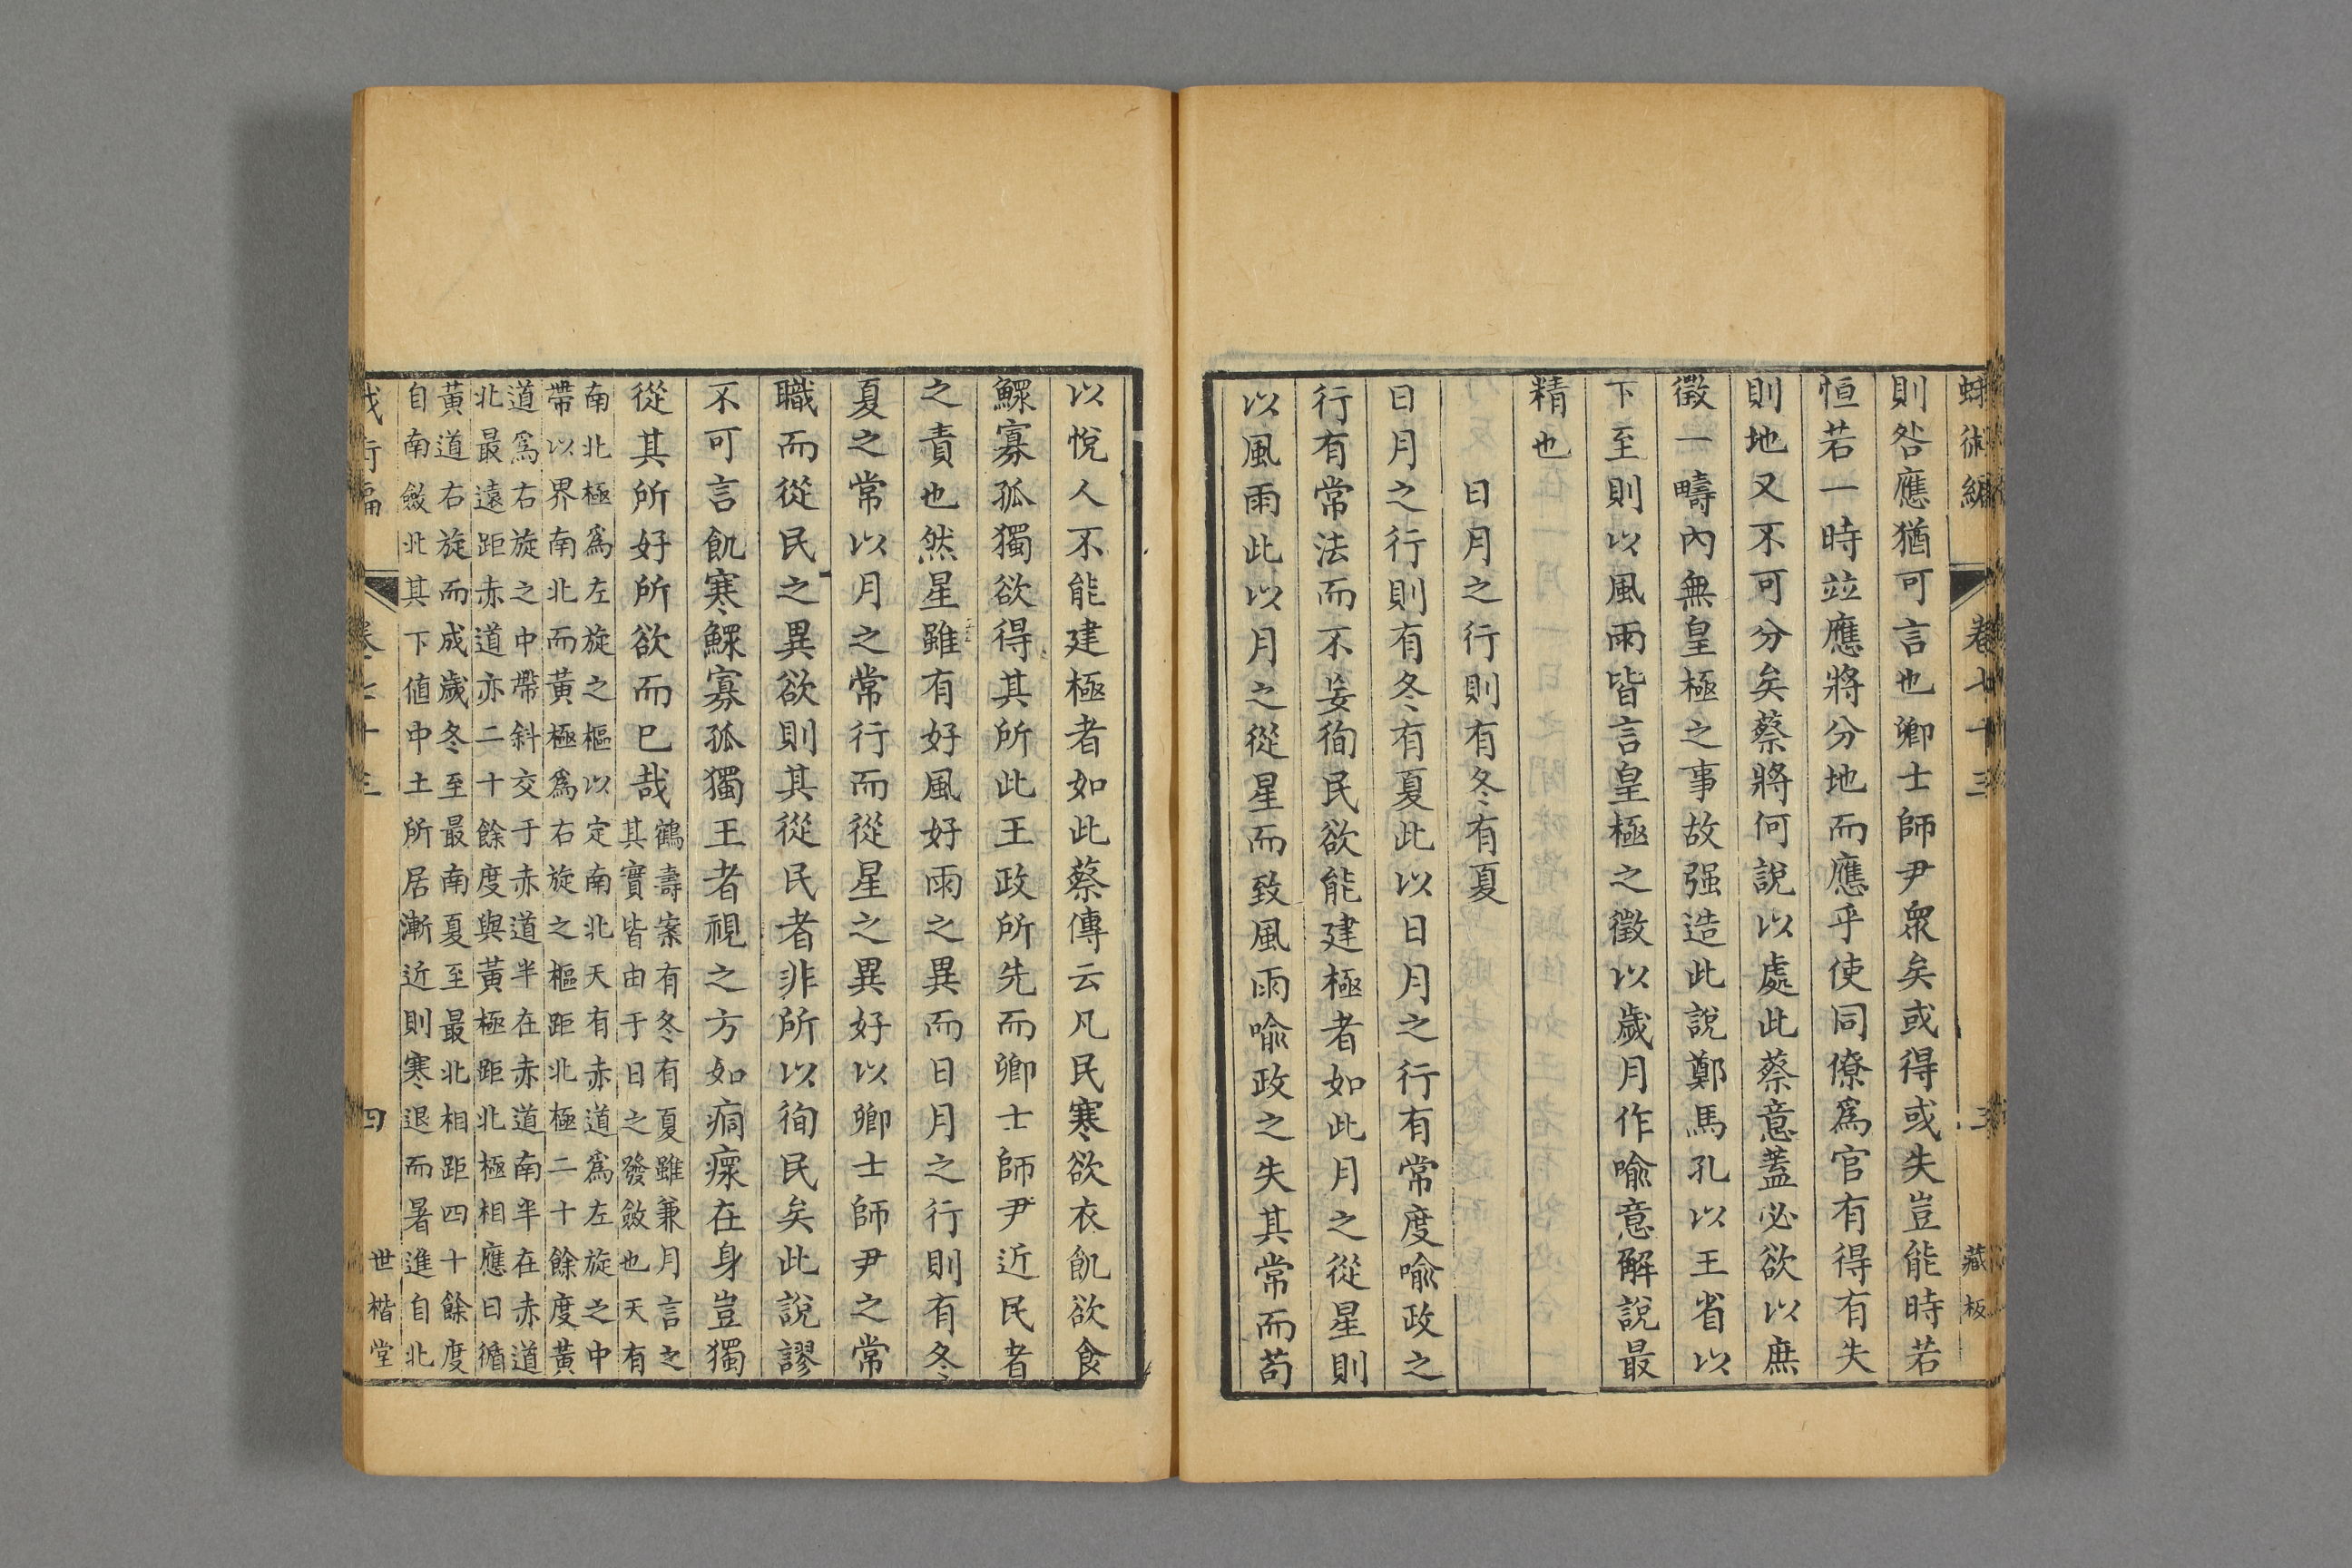 蛾術編 卷七十三 三 藏板
則咎應猶可言也卿士師尹眾矣或得或失豈能時若
恒若一時竝應將分地而應乎使同僚爲官有得有失
則地又不可分矣蔡將何說以處此蔡意蓋必欲以庶
徵一疇內無皇極之事故强造此說鄭馬孔以王省以
下至則以風雨皆言皇極之徵以歲月作喻意解說最
精也
日月之行則有冬有夏
日月之行則有冬有夏此以日月之行有常度喻政之
行有常法而不妄徇民欲能建極者如此月之從星則
以風雨此以月之從星而致風雨喻政之失其常而苟
以悅人不能建極者如此蔡傳云凡民寒欲衣飢欲食
鰥寡孤獨欲得其所此王政所先而卿士師尹近民者
之責也然星雖有好風好雨之異而日月之行則有冬
夏之常以月之常行而從星之異好以卿士師尹之常
職而從民之異欲則其從民者非所以徇民矣此說謬
不可言飢寒鰥寡孤獨王者視之方如痌瘝在身豈獨
從其所好所欲而已哉
鶴壽案有冬有夏雖兼月言之
其實皆由于日之發斂也天有
南北極爲左旋之樞以定南北天有赤道爲左旋之中
帶以界南北而黃極爲右旋之樞距北極二十餘度黃
道爲右旋之中帶斜交于赤道半在赤道南半在赤道
北最遠距赤道亦二十餘度與黃極距北極相應日循
黃道右旋而成歲冬至最南夏至最北相距四十餘度
自南斂北其下値中土所居漸近則寒退而暑進自北
卷七十三 四 世楷堂